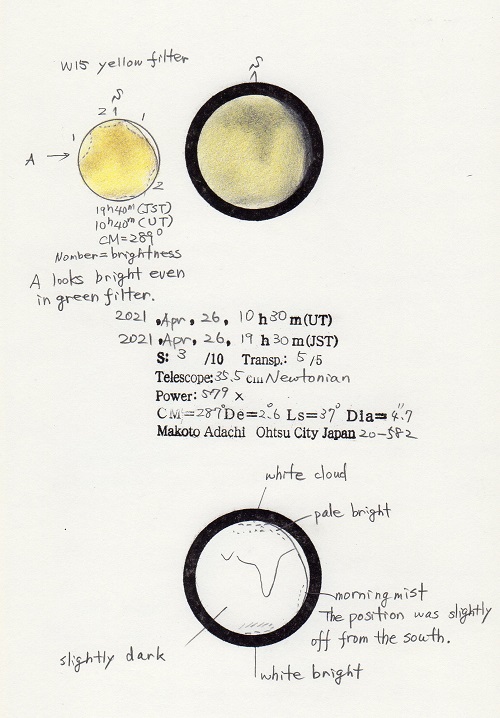 W15 yellow filter
S
S
2
1
1
A
2
19h40m (JST)
10h40m (UT)
CM=289°
Nomber=brightness
A looks bright even
in green filter.
2021, Apr, 26, 10h30m(UT)
2021, Apr, 26, 19h30m(JST)
S: 3 /10 Transp.: 5/5
Telescope: 35.5 cm Newtonian
Power: 579 x
CM=287° De=2.°6 Ls=37° Dia=4."7
Makoto Adachi Ohtsu City Japan 20-582
white cloud
pale bright
morning mist
The position was slightly
off from the south.
slightly dark
white bright